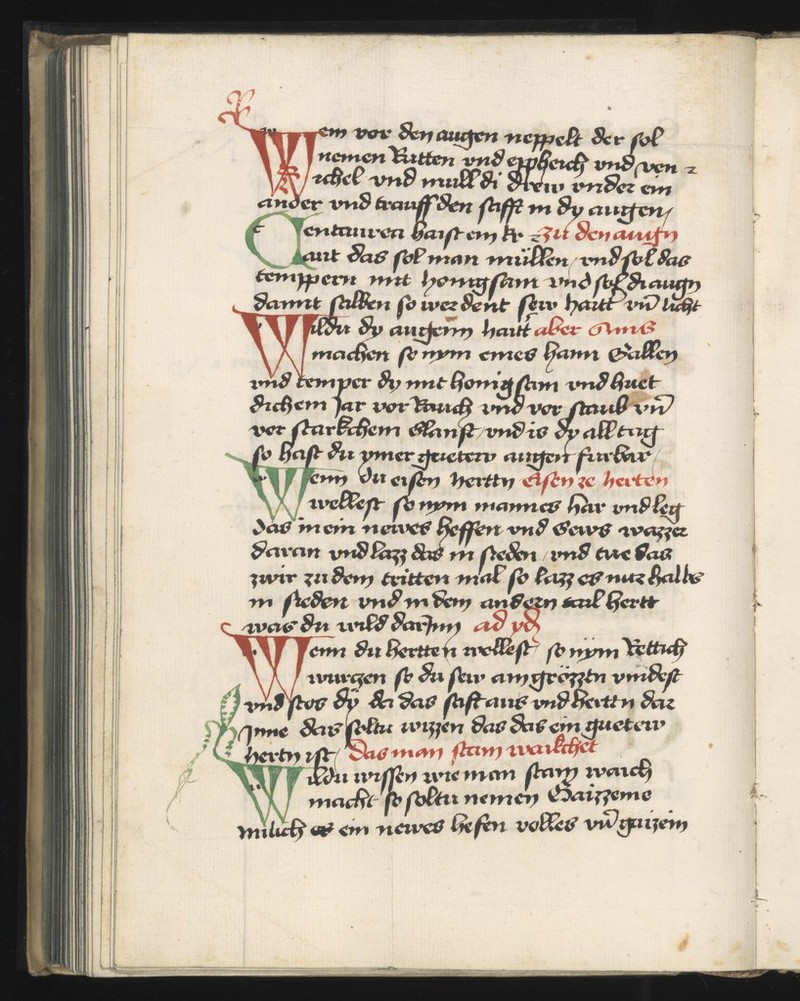 Wem vor den augen neppelt der sol
nemen Rutten vnd eppheich vnd ven
ichel vnd mull di drew vnder ein
ander vnd trauff den safft in dy augen
Centaurea haist ein kr zu den augn
aut das sol man müllen vnd sol das
tempern mit honigsam vnd sol di augn
damit salben so werdent sew hartt vn̄ licht
Wildu dy augenn hartt aber Aus
machen so nym eines hann Gallen
vnd temper dy mit honigsam vnd huet
dich ein Jar vor Rauch vnd vor staub vn̄
vor starkchem Glanst vnd is dy all tag
so hast du ymer guetew augen furbar
Wenn du eisen herttn Eisen ze herten
wellest so nym mannes har vnd leg
das in ein newes heffen vnd Gews wazzer
daran vnd lazz das in sieden vnd tue das
zwir zu dem tritten mal so lazz es nur halbs
in sieden vnd in dem andern tail hertt
was du wild darInn ad yd
Wenn du hertten wellest so nym Rettich
wurczen so du sew am grözztn vindest
vnd stos dy da das saft aus vnd herttn dar
Inne das soltu wizzen das das ein guetew
hertn ist das man stain waikchet
Wildu wissen wie man stain waich
macht so soltu nemen Gaizzeine
milich ein newes hefen volles vn̄ gaizein